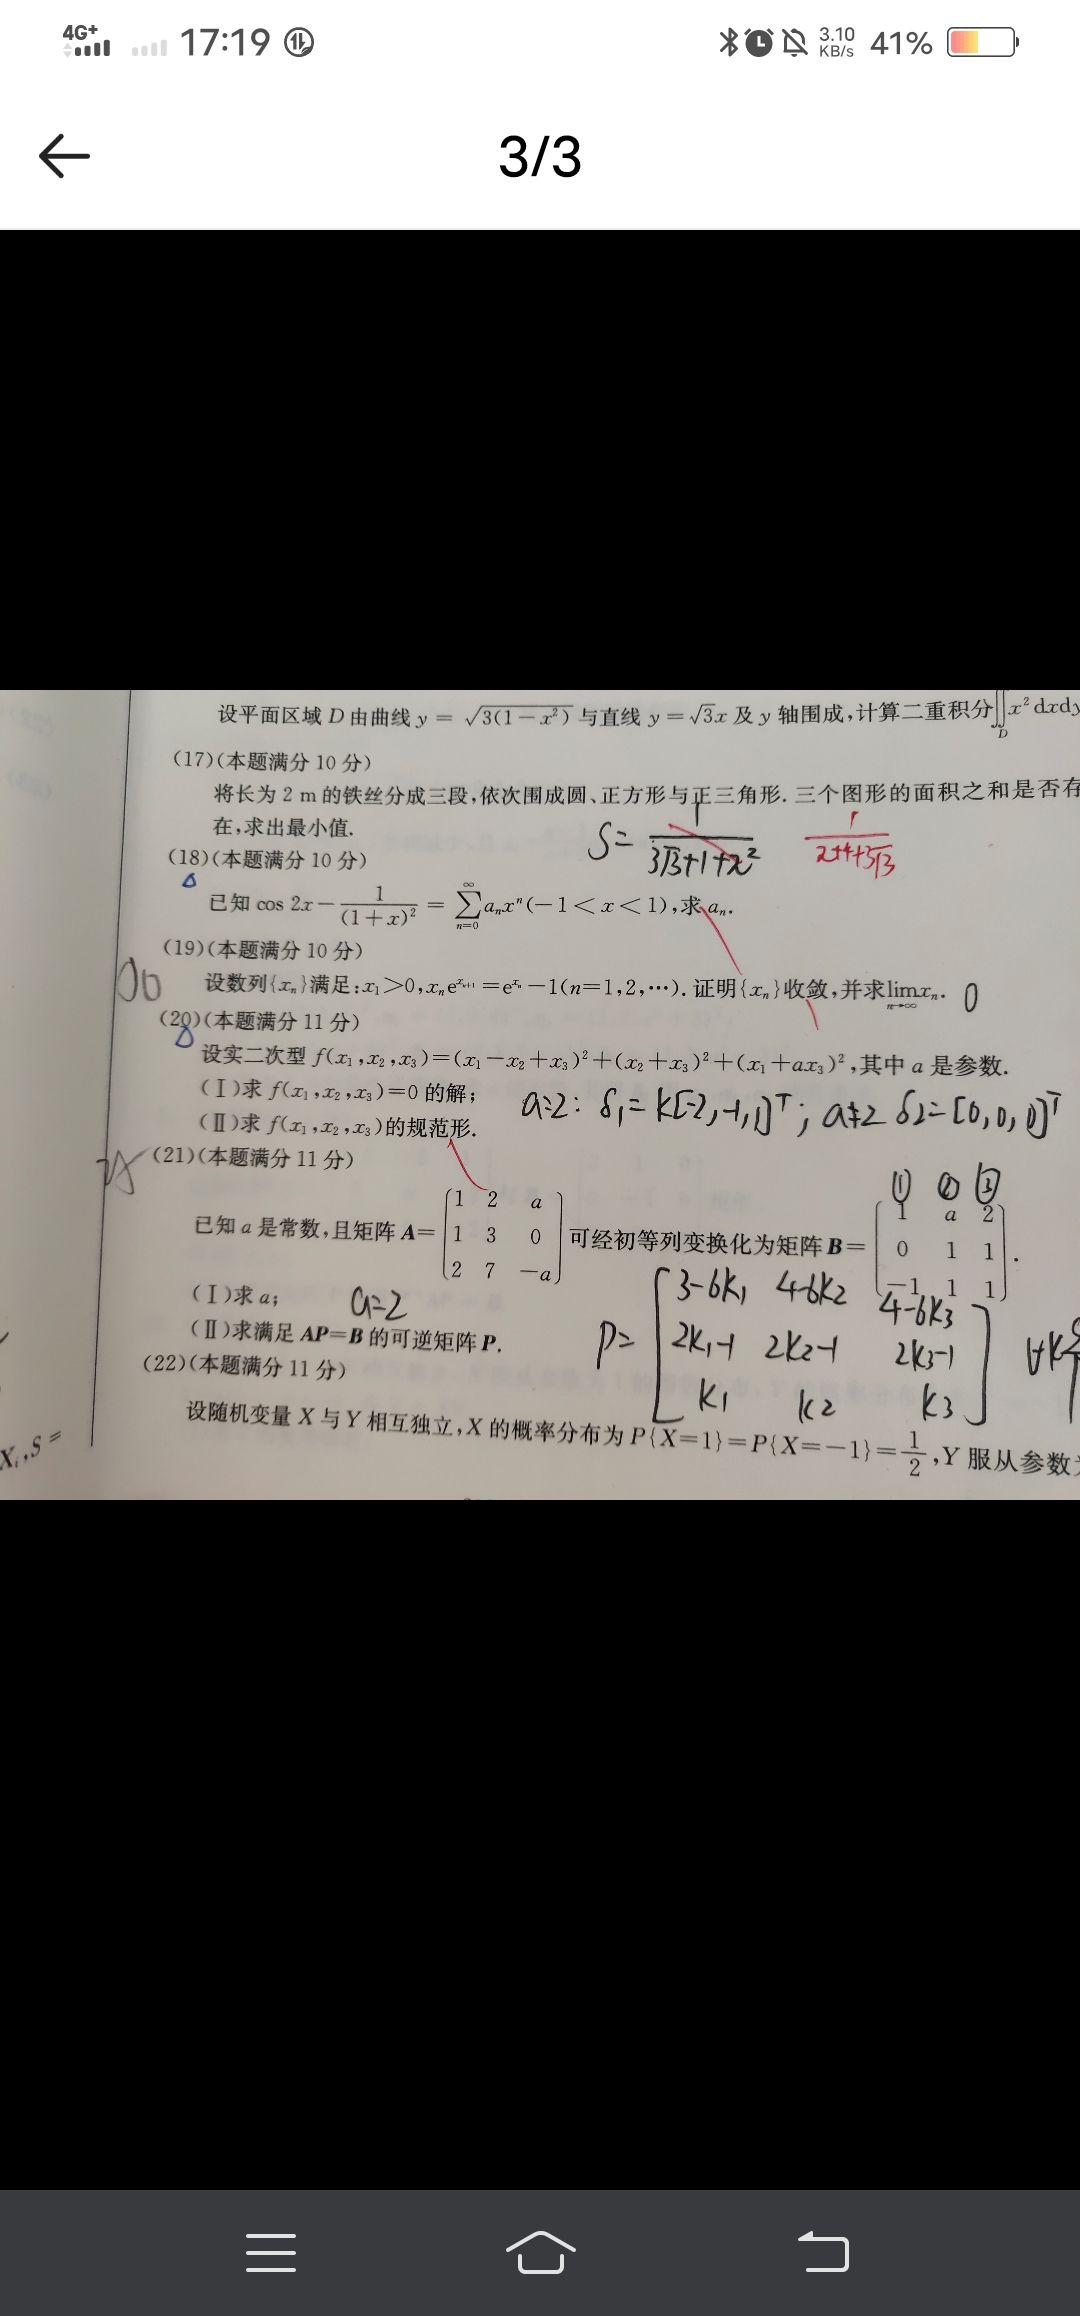 4G+ 17:19 3.10 KB/s 41%
3/3
设平面区域 D 由曲线 y = √3(1−x²) 与直线 y=√3x 及 y 轴围成,计算二重积分∬x² dxdy
D
(17)(本题满分 10 分)
将长为 2 m 的铁丝分成三段,依次围成圆、正方形与正三角形. 三个图形的面积之和是否存
在,求出最小值.
S= 1/(3√3+1+π²)
(18)(本题满分 10 分)
已知 cos 2x − 1/(1+x)² = ∑(n=0→∞) aₙxⁿ(−1<x<1),求 aₙ.
(19)(本题满分 10 分)
设数列{xₙ}满足:x₁>0,xₙe^(xₙ₊₁)=e^(xₙ)−1(n=1,2,⋯). 证明{xₙ}收敛,并求lim(n→∞)xₙ. 0
(20)(本题满分 11 分)
设实二次型 f(x₁,x₂,x₃)=(x₁−x₂+x₃)²+(x₂+x₃)²+(x₁+ax₃)²,其中 a 是参数.
(Ⅰ)求 f(x₁,x₂,x₃)=0 的解;
a=2: δ₁=k[-2,-1,1]ᵀ; a≠2 δ₂=[0,0,0]ᵀ
(Ⅱ)求 f(x₁,x₂,x₃)的规范形.
(21)(本题满分 11 分)
① ② ③
1 2 a 1 a 2
已知 a 是常数,且矩阵 A= 1 3 0 可经初等列变换化为矩阵 B= 0 1 1 .
2 7 −a −1 1 1
(Ⅰ)求 a; a=2
(Ⅱ)求满足 AP=B 的可逆矩阵 P.
3-6k₁ 4-6k₂ 4-6k₃
P= 2k₁-1 2k₂-1 2k₃-1
k₁ k₂ k₃
(22)(本题满分 11 分)
设随机变量 X 与 Y 相互独立,X 的概率分布为 P{X=1}=P{X=−1}=1/2,Y 服从参数为
X₁,S =